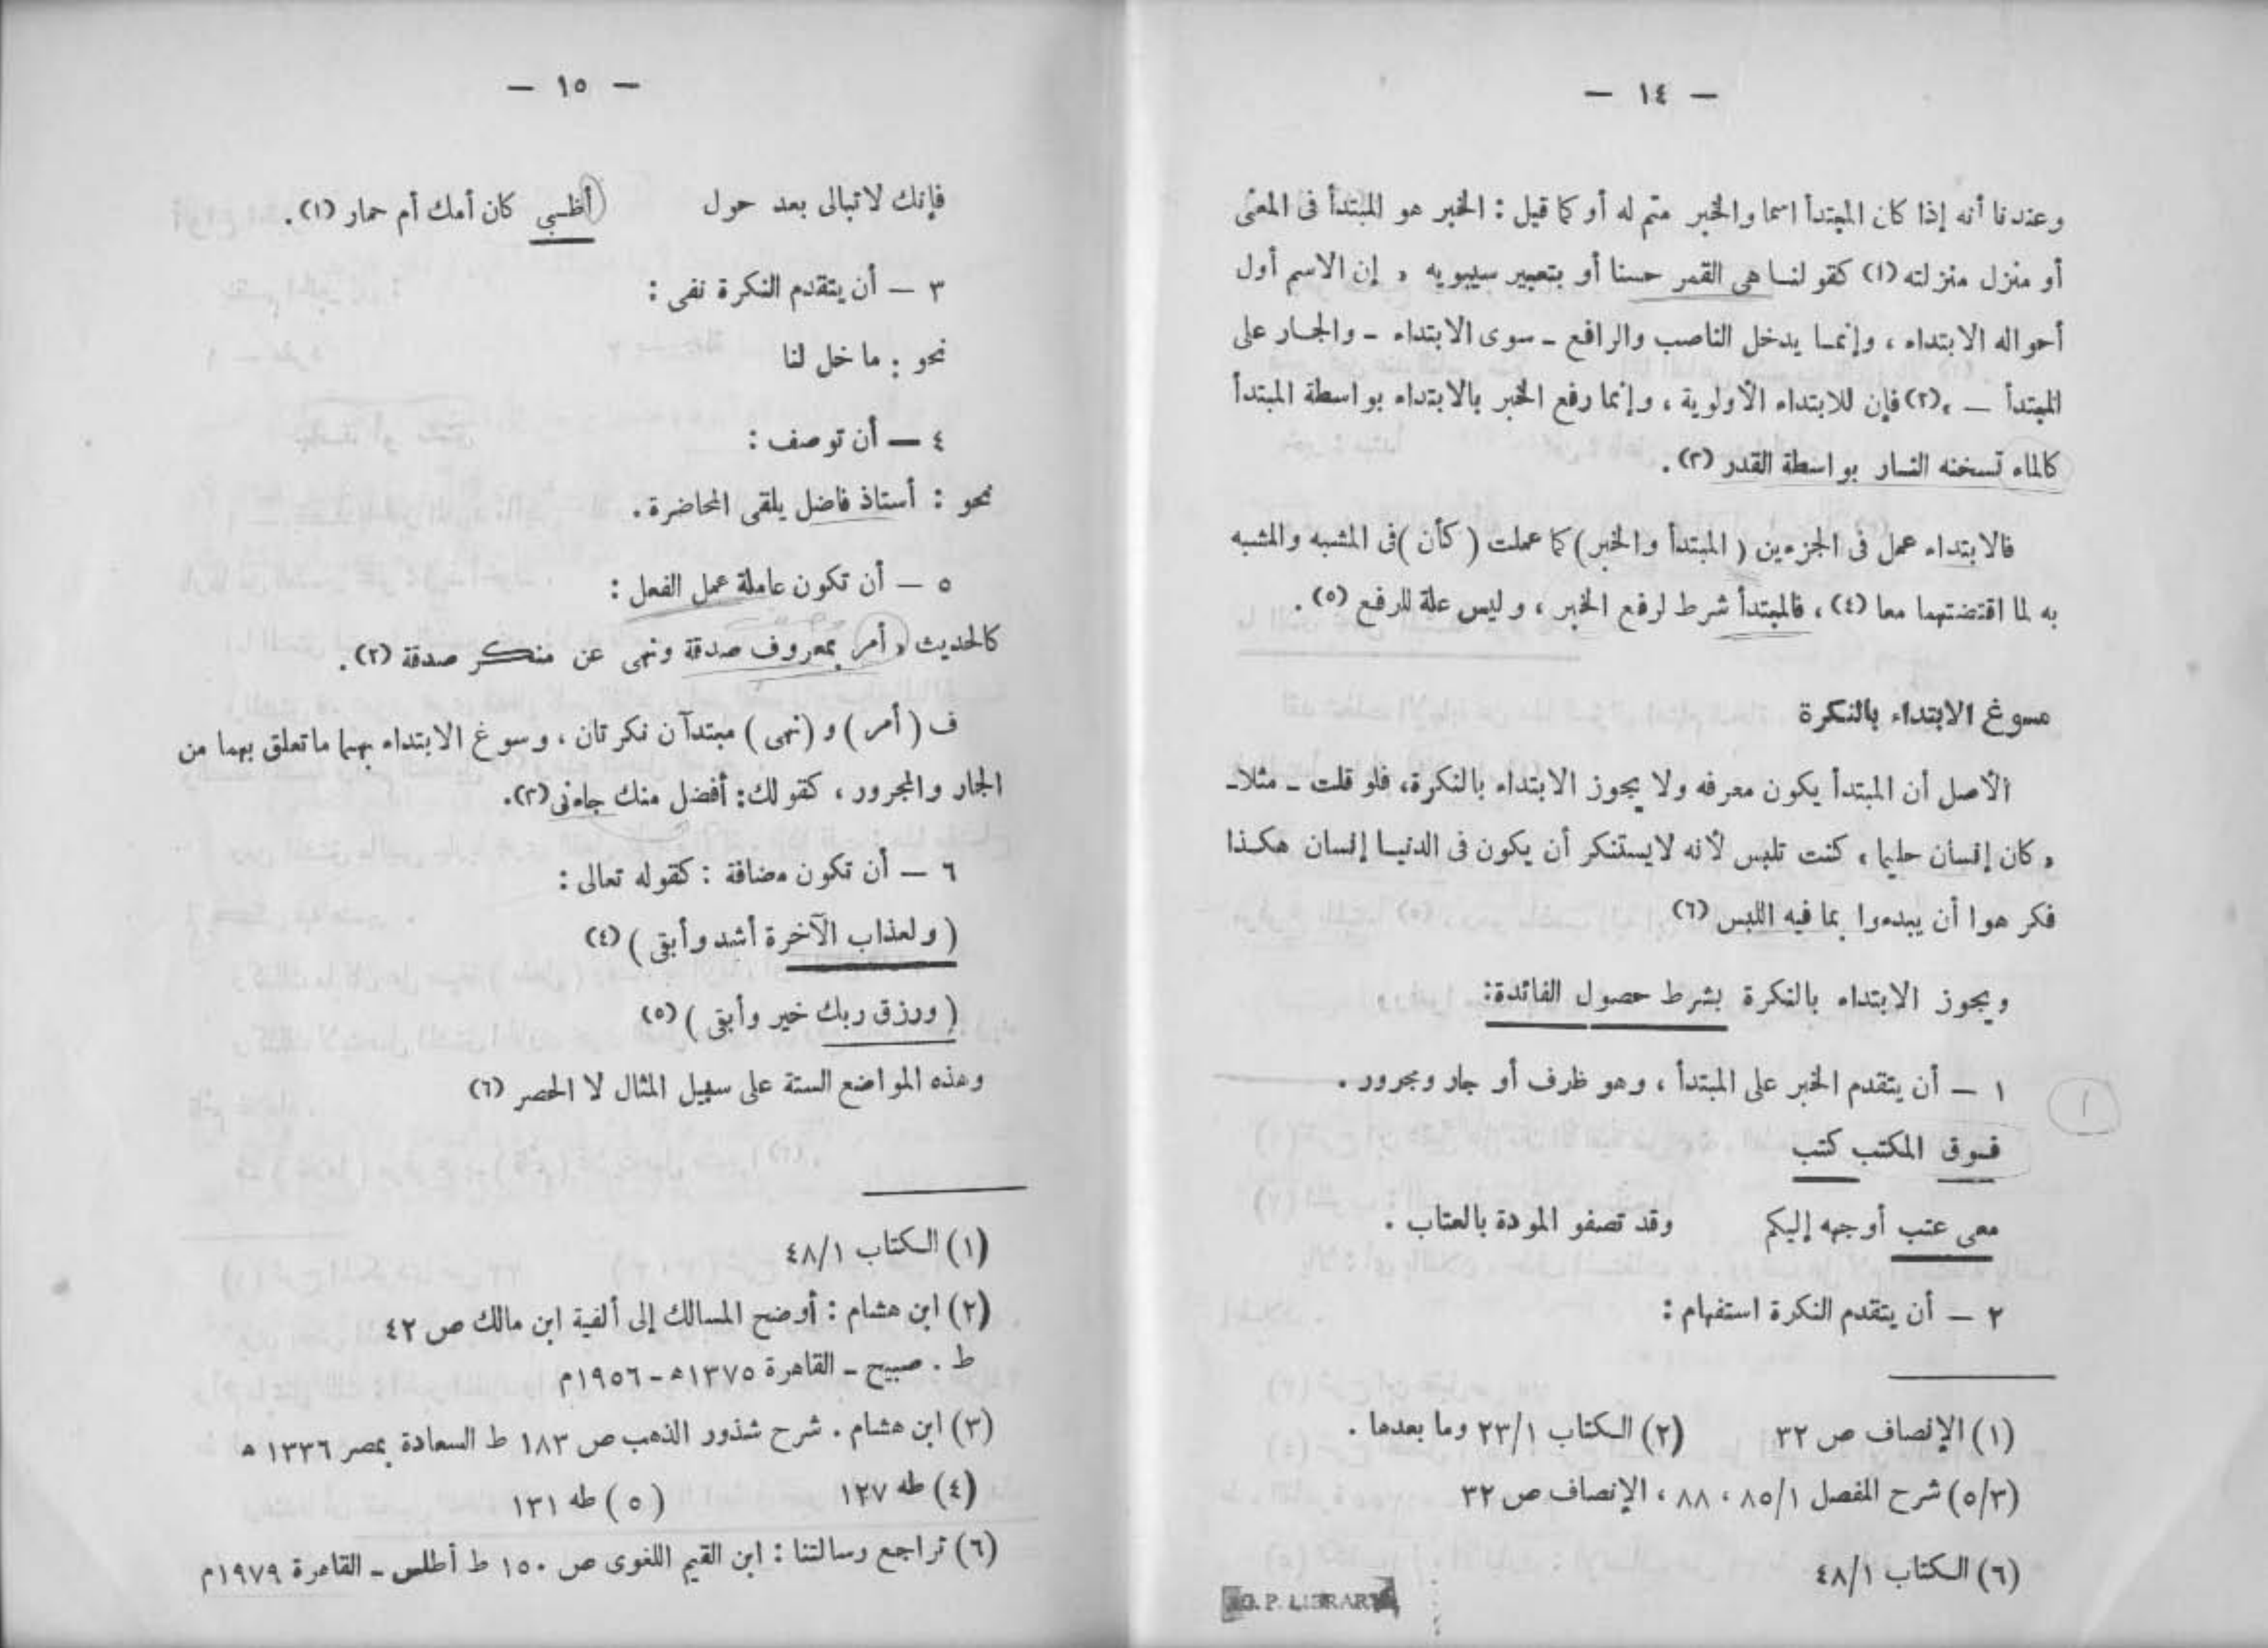 — ١٤ —
وعندنا أنه إذا كان المبتدأ اسما والخبر متم له أو كما قيل : الخبر هو المبتدأ فى المعنى
أو منزل منزلته (١) كقولنا هى القمر حسنا أو بتعبير سيبويه « إن الاسم أول
أحواله الابتداء ، وإنما يدخل الناصب والرافع ـ سوى الابتداء ـ والجار على
المبتدأ — »(٢) فإن للابتداء الأولوية ، وإنما رفع الخبر بالابتداء بواسطة المبتدأ
كالماء تسخنه النار بواسطة القدر (٣) .
فالابتداء عمل فى الجزءين ( المبتدأ والخبر ) كما عملت ( كأن ) فى المشبه والمشبه
به لما اقتضتهما معا (٤) ، فالمبتدأ شرط لرفع الخبر ، وليس علة للرفع (٥) .
مسوغ الابتداء بالنكرة
الأصل أن المبتدأ يكون معرفه ولا يجوز الابتداء بالنكرة، فلو قلت ـ مثلا ـ
« كان إنسان حليما » كنت تلبس لأنه لا يستنكر أن يكون فى الدنيا إنسان هكذا
فكرهوا أن يبدءوا بما فيه اللبس (٦)
ويجوز الابتداء بالنكرة بشرط حصول الفائدة:
١ — أن يتقدم الخبر على المبتدأ ، وهو ظرف أو جار ومجرور .
١
فوق المكتب كتب
معى عتب أوجهه إليكم وقد تصفو المودة بالعتاب .
٢ — أن يتقدم النكرة استفهام :
(١) الإنصاف ص ٣٢ (٢) الكتاب ٢٣/١ وما بعدها .
(٥/٣) شرح المفصل ٨٥/١ ، ٨٨ ، الإنصاف ص ٣٢
(٦) الكتاب ٤٨/١
O.P. LIBRARY
— ١٥ —
فإنك لا تبالى بعد حول أظبى كان أمك أم حمار (١) .
٣ — أن يتقدم النكرة نفى :
نحو : ما خل لنا
٤ — أن توصف :
نحو : أستاذ فاضل يلقى المحاضرة .
٥ — أن تكون عاملة عمل الفعل :
كالحديث « أمر بمعروف صدقة ونهى عن منكر صدقة (٢) .
ف ( أمر ) و ( نهى ) مبتدآن نكرتان ، وسوغ الابتداء بهما ما تعلق بهما من
الجار والمجرور ، كقولك: أفضل منك جاءنى (٣).
٦ — أن تكون مضافة : كقوله تعالى :
( ولعذاب الآخرة أشد وأبقى ) (٤)
( ورزق ربك خير وأبقى ) (٥)
وهذه المواضع الستة على سبيل المثال لا الحصر (٦)
(١) الكتاب ٤٨/١
(٢) ابن هشام : أوضح المسالك إلى ألفية ابن مالك ص ٤٢
ط . صبيح ـ القاهرة ١٣٧٥هـ ـ ١٩٥٦م
(٣) ابن هشام . شرح شذور الذهب ص ١٨٣ ط السعادة بمصر ١٣٣٦ هـ
(٤) طه ١٢٧ (٥) طه ١٣١
(٦) تراجع رسالتنا : ابن القيم اللغوى ص ١٥٠ ط أطلس ـ القاهرة ١٩٧٩م